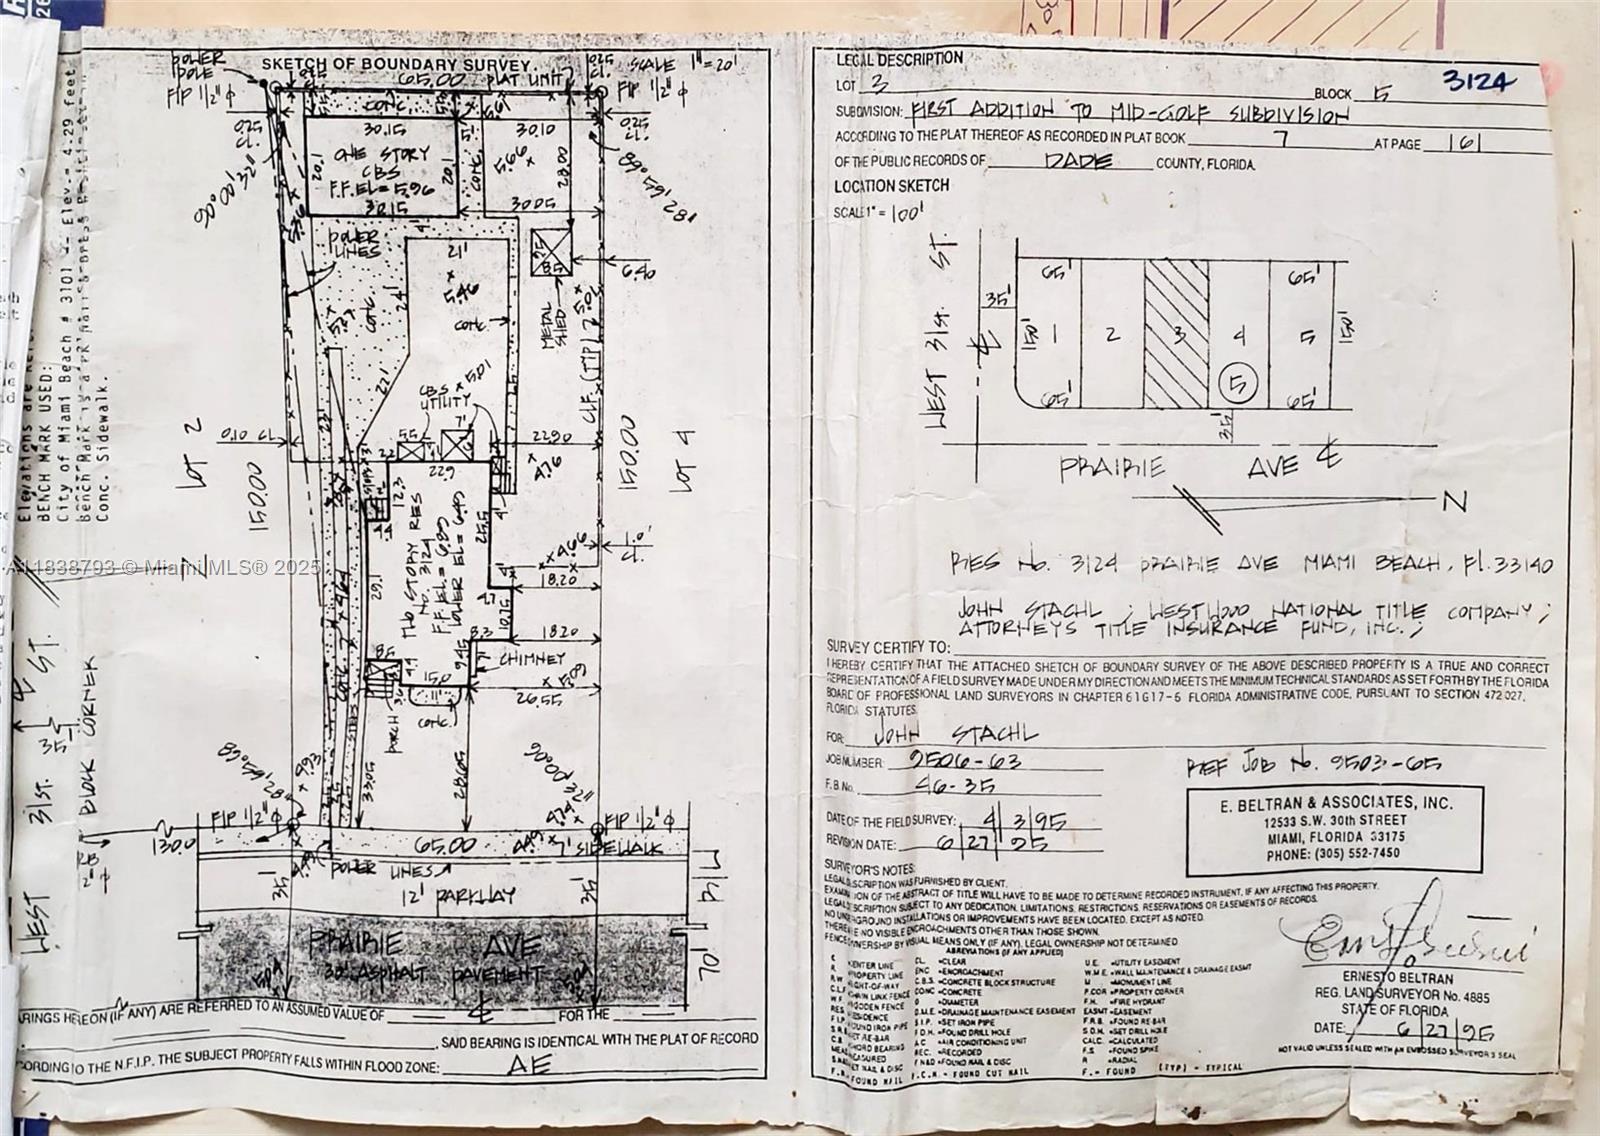 SKETCH OF BOUNDARY SURVEY.
SCALE 1"=20'
POWER
POLE
65.00
PLAT UNIT
FIP 1/2" ϕ
FIP 1/2" ϕ
0.25
CL.
0.25
CL.
CONC.
30.15
30.10
ONE STORY
CBS
F.F.EL= 5.96
20.1
20.1
5.66
28.00
CONC.
30.15
30.05
90°00'32"
89°59'28"
POWER
LINES
21'
5.46
24'
CONC.
CONC.
6.40
METAL
SHED
22'
CBS
UTILITY
5.01
CLF (TYP)
0.10 CL
22.90
4.76
22.9
LOT 2
150.00
150.00
LOT 4
12.3
TWO STORY RES
No. 3124
F.F.EL= 6.89
LOWER EL= 6.45
25.5
1.0'
CL.
4.66
18.20
29.1
10.75
3.3
18.20
CHIMNEY
9.45
8.5
15.0
5.09
26.55
PORCH
CONC.
33.05
28.65
89°59'28"
90°00'32"
4.93
4.74
FIP 1/2" ϕ
FIP 1/2" ϕ
130.0
65.00
7' SIDEWALK
POWER LINES
12' PARKWAY
35'
35'
PRAIRIE AVE
30' ASPHALT PAVEMENT
70'
R/W
WEST 31st. ST.
35'
BLOCK CORNER
BENCH MARK USED:
City of Miami Beach # 3101 - Elev.= 4.29 feet
Conc. Sidewalk.
N
A11838793 © Miami MLS® 2025
ARINGS HEREON (IF ANY) ARE REFERRED TO AN ASSUMED VALUE OF
FOR THE
, SAID BEARING IS IDENTICAL WITH THE PLAT OF RECORD
CORDING TO THE N.F.I.P. THE SUBJECT PROPERTY FALLS WITHIN FLOOD ZONE: AE
LEGAL DESCRIPTION
3124
LOT 3 BLOCK 5
SUBDIVISION: FIRST ADDITION TO MID-GOLF SUBDIVISION
ACCORDING TO THE PLAT THEREOF AS RECORDED IN PLAT BOOK 7 AT PAGE 161
OF THE PUBLIC RECORDS OF DADE COUNTY, FLORIDA.
LOCATION SKETCH
SCALE 1" = 100'
WEST 31st. ST.
65' 65'
35'
150' 1 2 3 4 5 150'
5
65' 65'
35'
PRAIRIE AVE ℄
N
RES No. 3124 PRAIRIE AVE MIAMI BEACH, Fl. 33140
JOHN STACHL ; WESTWOOD NATIONAL TITLE COMPANY ;
ATTORNEYS TITLE INSURANCE FUND, INC. ;
SURVEY CERTIFY TO:
I HEREBY CERTIFY THAT THE ATTACHED SKETCH OF BOUNDARY SURVEY OF THE ABOVE DESCRIBED PROPERTY IS A TRUE AND CORRECT
REPRESENTATION OF A FIELD SURVEY MADE UNDER MY DIRECTION AND MEETS THE MINIMUM TECHNICAL STANDARDS AS SET FORTH BY THE FLORIDA
BOARD OF PROFESSIONAL LAND SURVEYORS IN CHAPTER 61G17-6 FLORIDA ADMINISTRATIVE CODE, PURSUANT TO SECTION 472.027,
FLORIDA STATUTES.
FOR: JOHN STACHL
JOB NUMBER: 9506-63
REF JOB No. 9503-65
F.B. No. 46-35
DATE OF THE FIELD SURVEY: 4/3/95
REVISION DATE: 6/27/95
E. BELTRAN & ASSOCIATES, INC.
12533 S.W. 30th STREET
MIAMI, FLORIDA 33175
PHONE: (305) 552-7450
SURVEYOR'S NOTES:
LEGAL DESCRIPTION WAS FURNISHED BY CLIENT.
EXAMINATION OF THE ABSTRACT OF TITLE WILL HAVE TO BE MADE TO DETERMINE RECORDED INSTRUMENT, IF ANY AFFECTING THIS PROPERTY.
LEGAL DESCRIPTION SUBJECT TO ANY DEDICATION, LIMITATIONS, RESTRICTIONS, RESERVATIONS OR EASEMENTS OF RECORDS.
NO UNDERGROUND INSTALLATIONS OR IMPROVEMENTS HAVE BEEN LOCATED, EXCEPT AS NOTED.
THERE ARE NO VISIBLE ENCROACHMENTS OTHER THAN THOSE SHOWN.
FENCE OWNERSHIP BY VISUAL MEANS ONLY (IF ANY). LEGAL OWNERSHIP NOT DETERMINED
ABREVIATIONS (IF ANY APPLIED)
CENTER LINE CL. =CLEAR U.E. =UTILITY EASEMENT
PROPERTY LINE ENC =ENCROACHMENT W.M.E. =WALL MAINTENANCE & DRAINAGE EASMT
C.B.S. =CONCRETE BLOCK STRUCTURE M =MONUMENT LINE
CHAIN LINK FENCE CONC =CONCRETE P.COR =PROPERTY CORNER
WOODEN FENCE =DIAMETER F.H. =FIRE HYDRANT
D.M.E. =DRAINAGE MAINTENANCE EASEMENT EASMT =EASEMENT
FOUND IRON PIPE S.I.P. =SET IRON PIPE F.R.B. =FOUND RE-BAR
F.D.H. =FOUND DRILL HOLE S.D.H. =SET DRILL HOLE
CHORD BEARING A.C =AIR CONDITIONING UNIT CALC. =CALCULATED
REC. =RECORDED F.S =FOUND SPIKE
F.N&D =FOUND NAIL & DISC R =RADIAL
F.N =FOUND NAIL F.C.N - FOUND CUT NAIL F. - FOUND (TYP) - TYPICAL
ERNESTO BELTRAN
REG. LAND SURVEYOR No. 4885
STATE OF FLORIDA
DATE: 6/27/95
NOT VALID UNLESS SEALED WITH AN EMBOSSED SURVEYOR'S SEAL